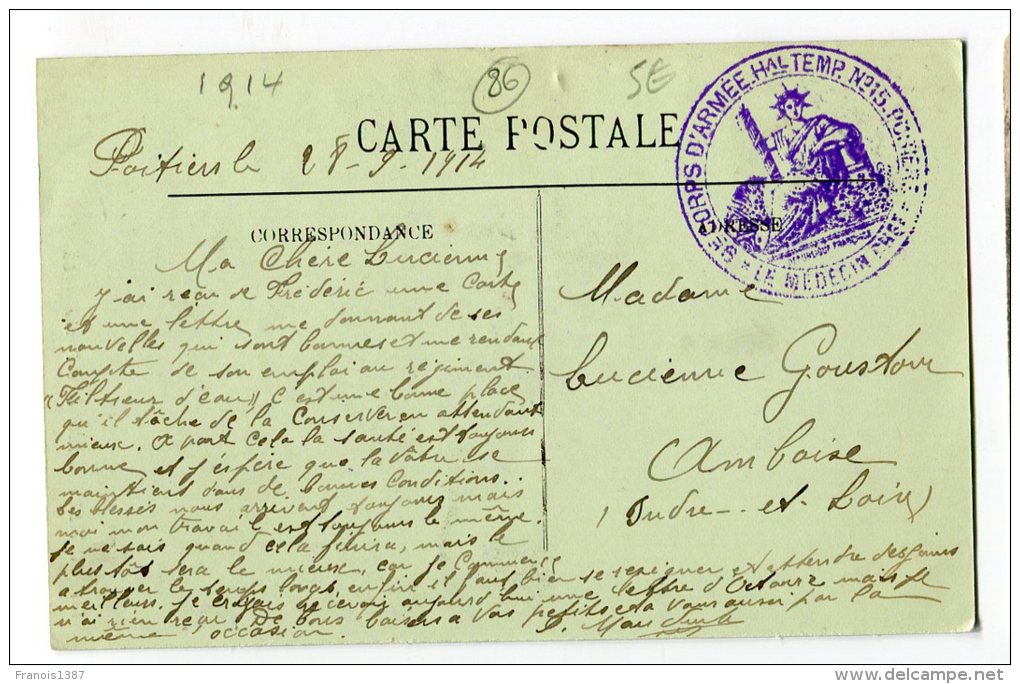 1914
86
SE
CARTE POSTALE
Poitiers le 28-9-1914
9E CORPS D'ARMÉE. HAL TEMP. No 15. POITIERS
LE MÉDECIN CHEF
CORRESPONDANCE
ADRESSE
Ma Chère Lucienne
J'ai reçu de Frédéric une Carte
et une lettre me donnant de ses
nouvelles qui sont bonnes et me rendant
Compte de son emploi au régiment
"Filtreur d'eau" C'est une bonne place
qu'il tâche de la Conserver en attendant
mieux. A part cela la santé est toujours
bonne et j'espère que la vôtre se
maintient dans de bonnes Conditions.
Les blessés nous arrivent toujours mais
moi mon travail est toujours le même.
Je ne sais quand cela finira, mais le
plus tôt sera le mieux, car je Commence
a trouver le temps long, enfin il faut bien se resigner et attendre des jours
meilleurs. Je croyais recevoir aujourd'hui une lettre d' mais je
n'ai rien reçu. De bons baisers a vos petits et a vous aussi par la
même occasion.
Madame
Lucienne Goustour
Amboise
(Indre-et-Loire)
Francois1387
www.delcampe.net